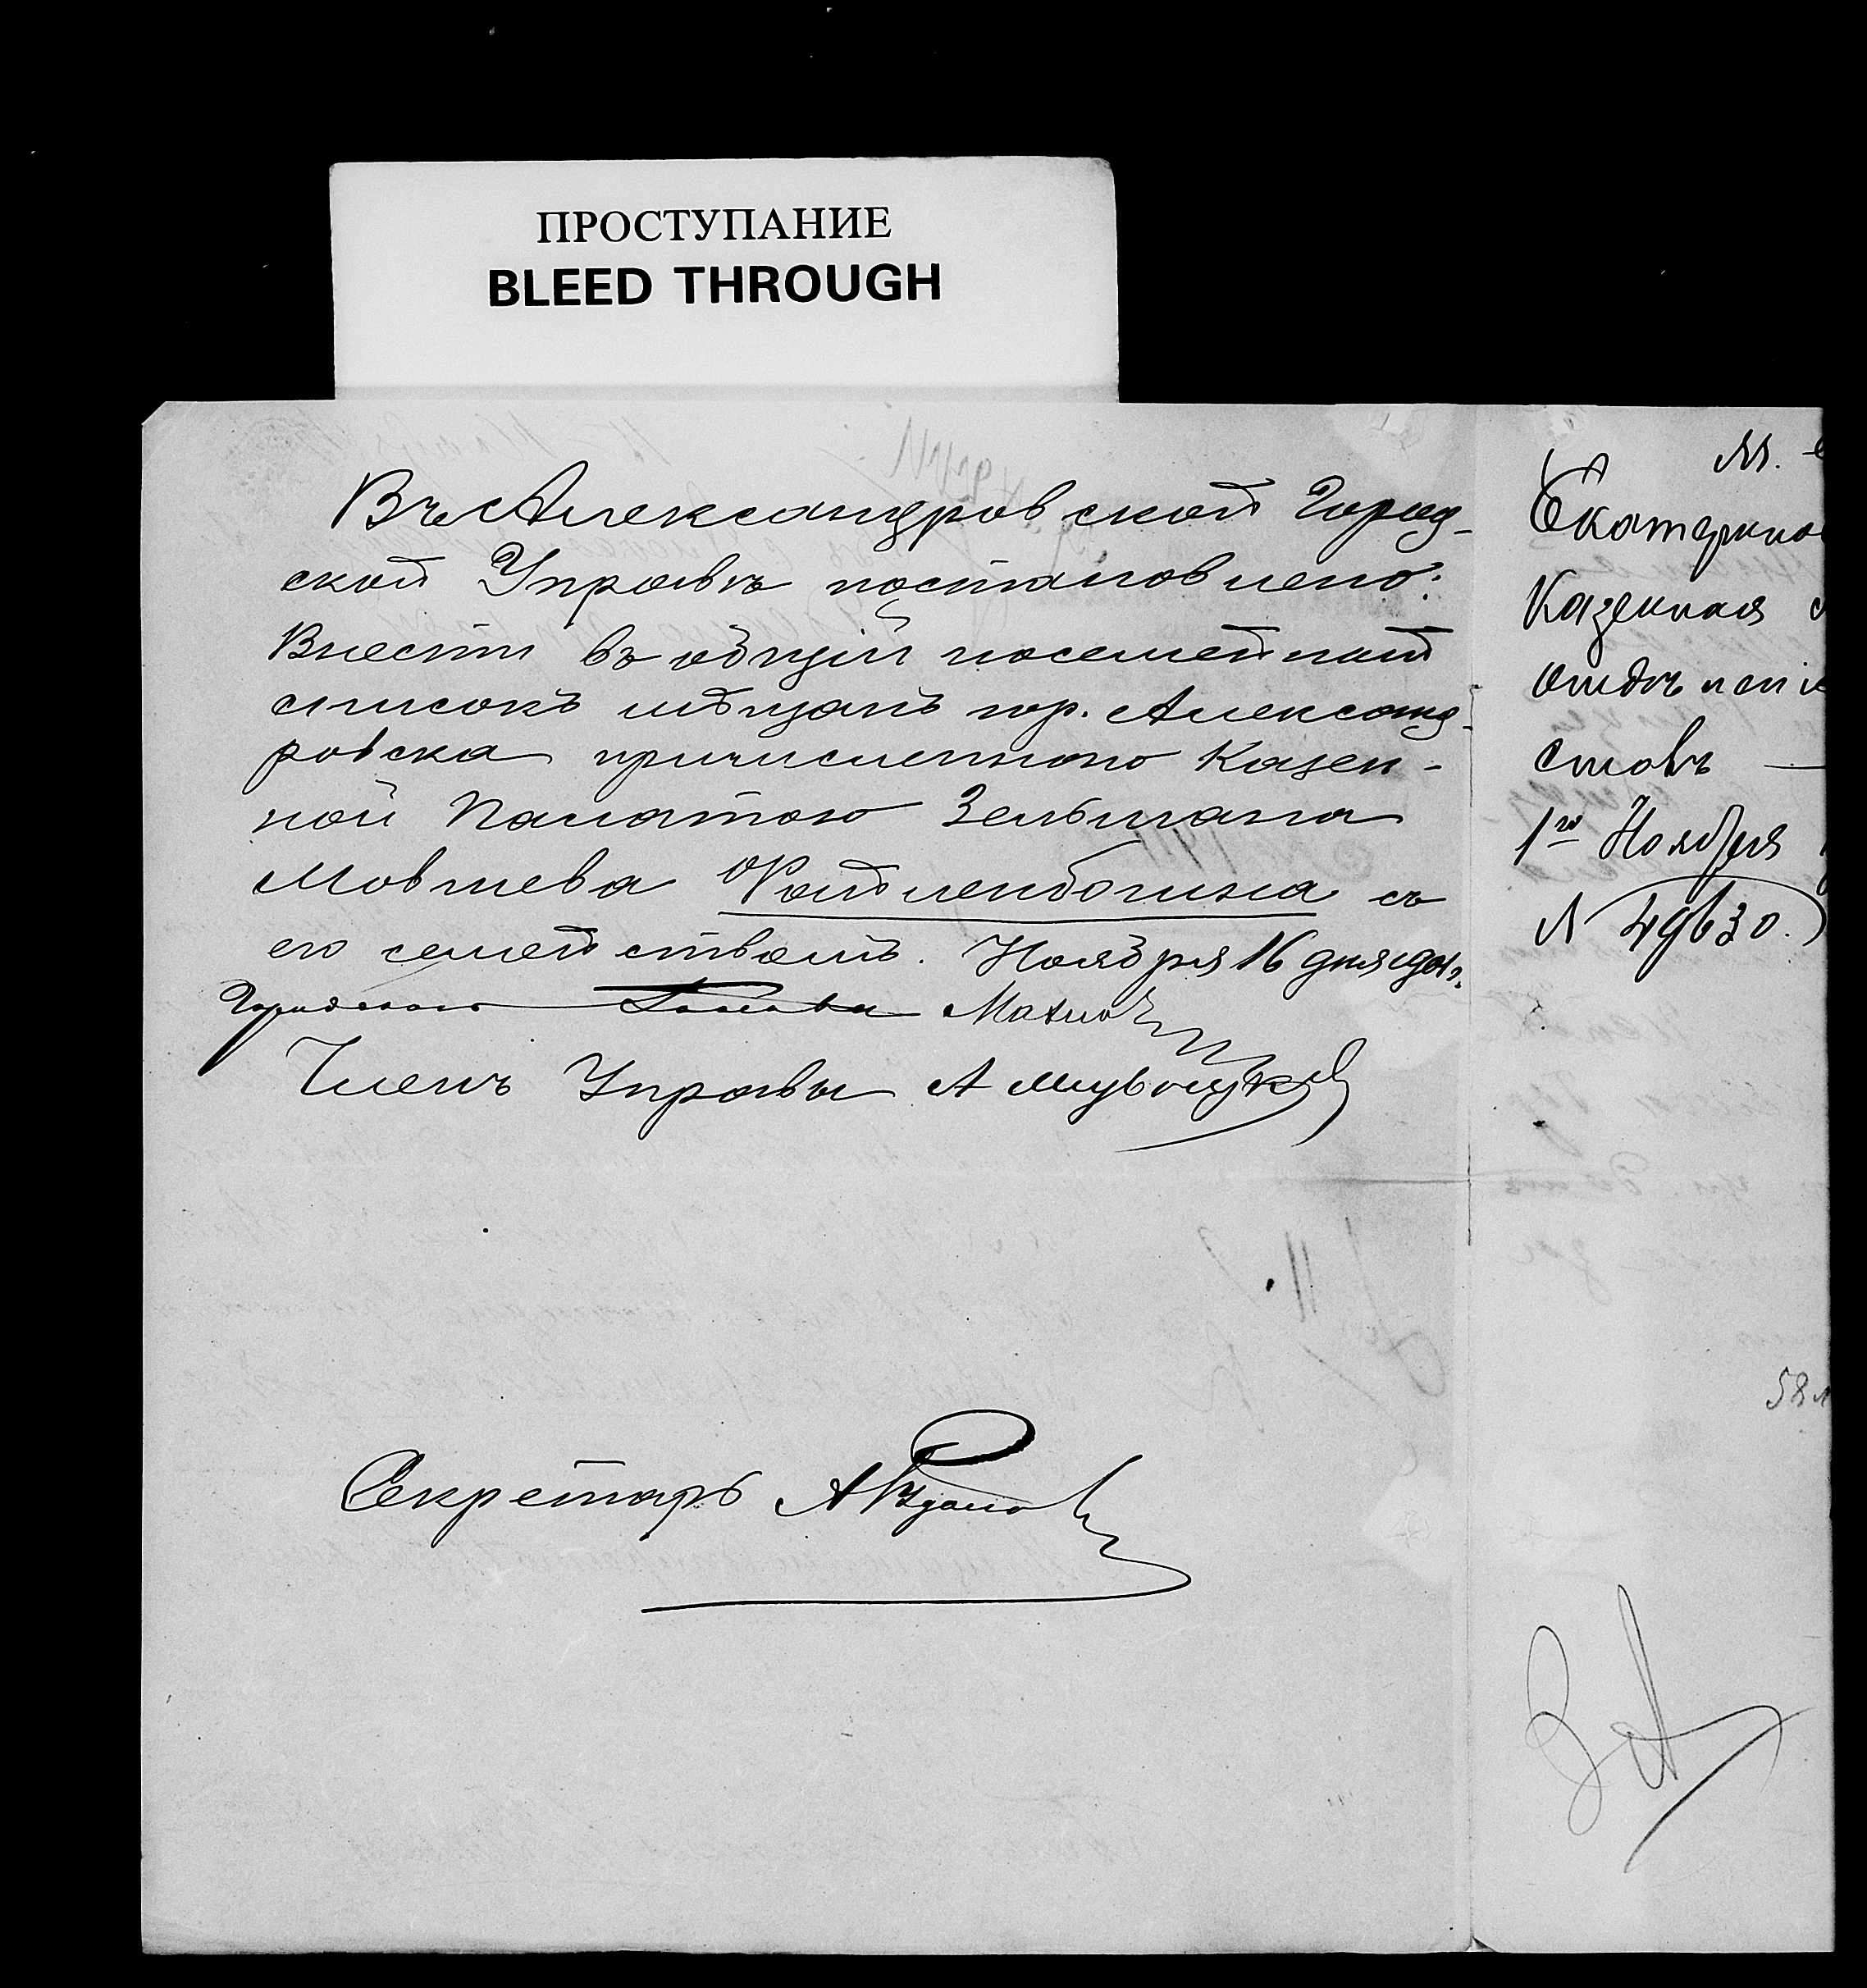 ПРОСТУПАНИЕ
BLEED THROUGH
Въ Александровской Город-
ской Управѣ постановлено:
Внести въ общій посемейный
списокъ мѣщанъ гор. Александ-
ровска причисленнаго Казен-
ной Палатою Зельмана
Мовшева Файтленбогина съ
его семействомъ. Ноября 16 дня
Городской Голова
Членъ Управы А
Секретарь А
М.
Екатерино
Казенная
Отдѣленіе
столъ
1го Ноября
№ 49630.
58